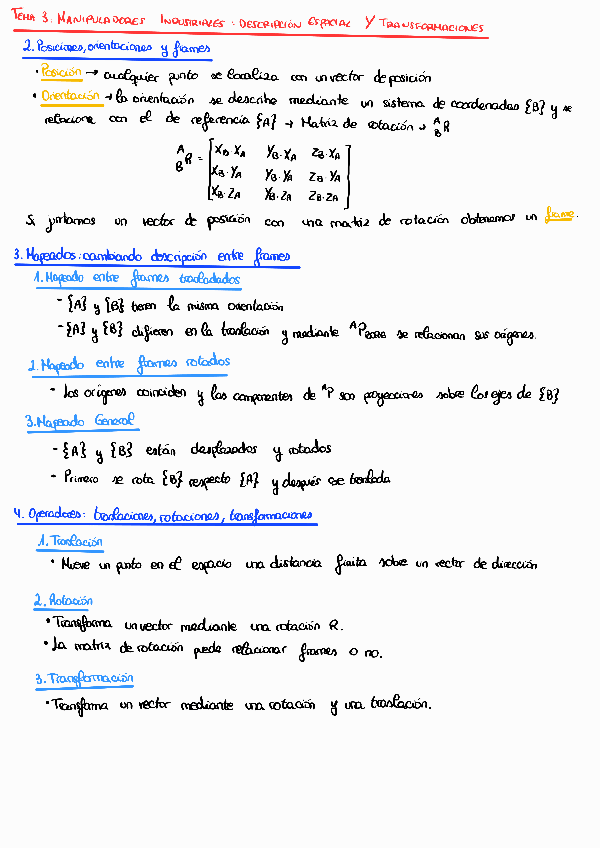 TEMA 3. MANIPULADORES INDUSTRIALES: DESCRIPCIÓN ESPACIAL Y TRANSFORMACIONES
2. Posiciones, orientaciones y frames
· Posición → cualquier punto se localiza con un vector de posición
· Orientación → la orientación se describe mediante un sistema de coordenadas {B} y se
relaciona con el de referencia {A} → Matriz de rotación → ᴬ_B R
ᴬ_B R = [ X_B·X_A Y_B·X_A Z_B·X_A
X_B·Y_A Y_B·Y_A Z_B·Y_A
X_B·Z_A Y_B·Z_A Z_B·Z_A ]
Si juntamos un vector de posición con una matriz de rotación obtenemos un frame.
3. Mapeados: cambiando descripción entre frames
1. Mapeado entre frames trasladados
- {A} y {B} tienen la misma orientación
- {A} y {B} difieren en la traslación y mediante ᴬP_BORG se relacionan sus orígenes.
2. Mapeado entre frames rotados
- Los orígenes coinciden y las componentes de ᴬP son proyecciones sobre los ejes de {B}
3. Mapeado General
- {A} y {B} están desplazados y rotados
- Primero se rota {B} respecto {A} y después se traslada
4. Operadores: traslaciones, rotaciones, transformaciones
1. Traslación
· Mueve un punto en el espacio una distancia finita sobre un vector de dirección
2. Rotación
· Transforma un vector mediante una rotación R.
· La matriz de rotación puede relacionar frames o no.
3. Transformación
· Transforma un vector mediante una rotación y una traslación.